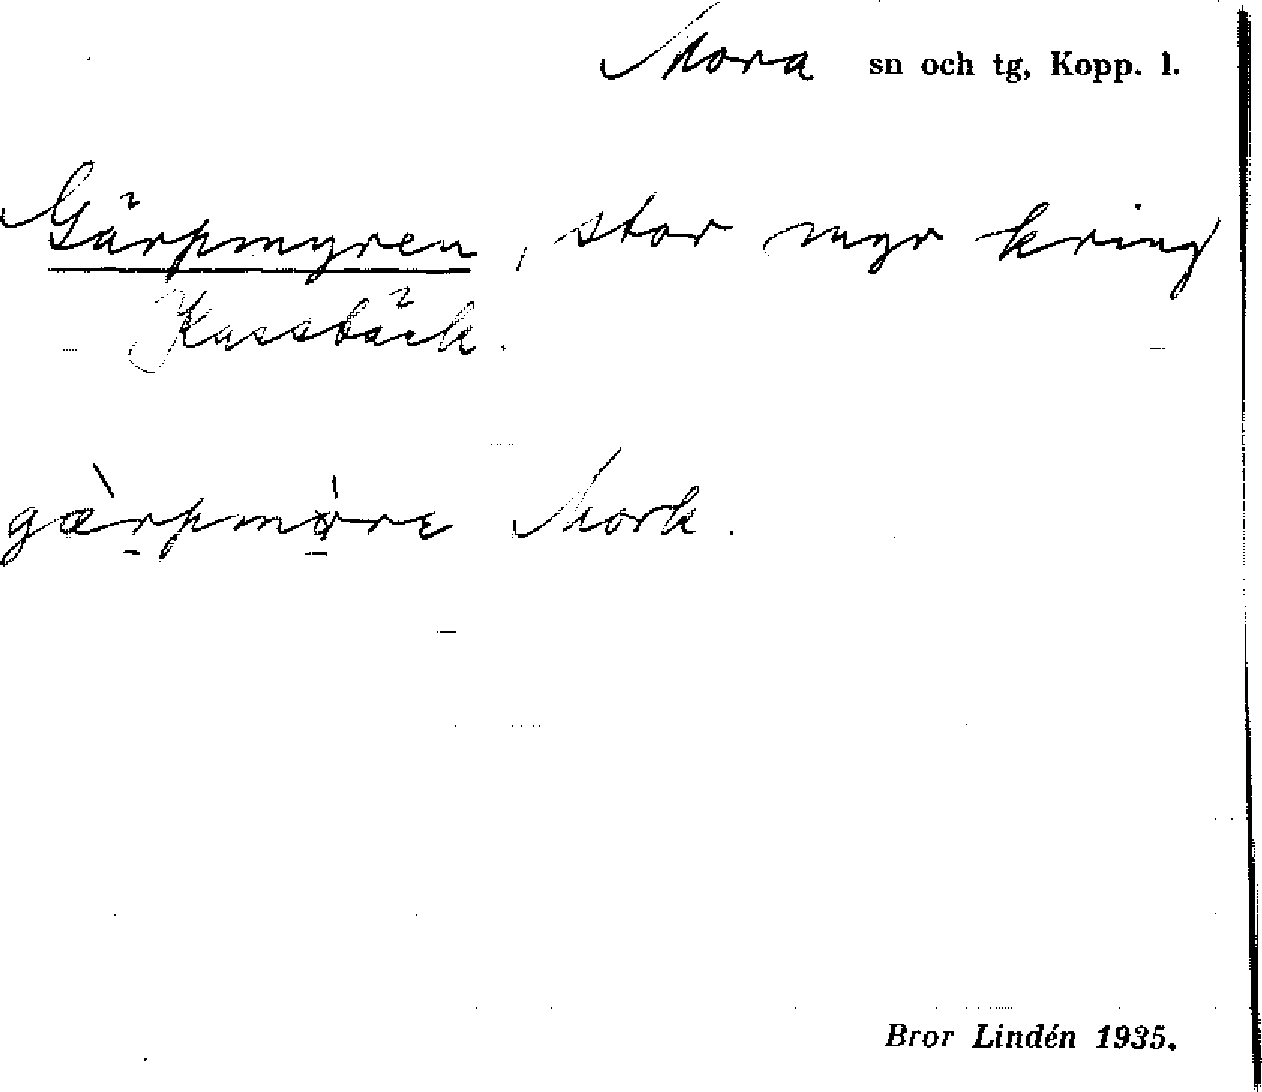 Mora sn och tg, Kopp. l.
Gärpmyren, stor myr kring
Kassbäck.
gàrpmøre Mork.
Bror Lindén 1935.